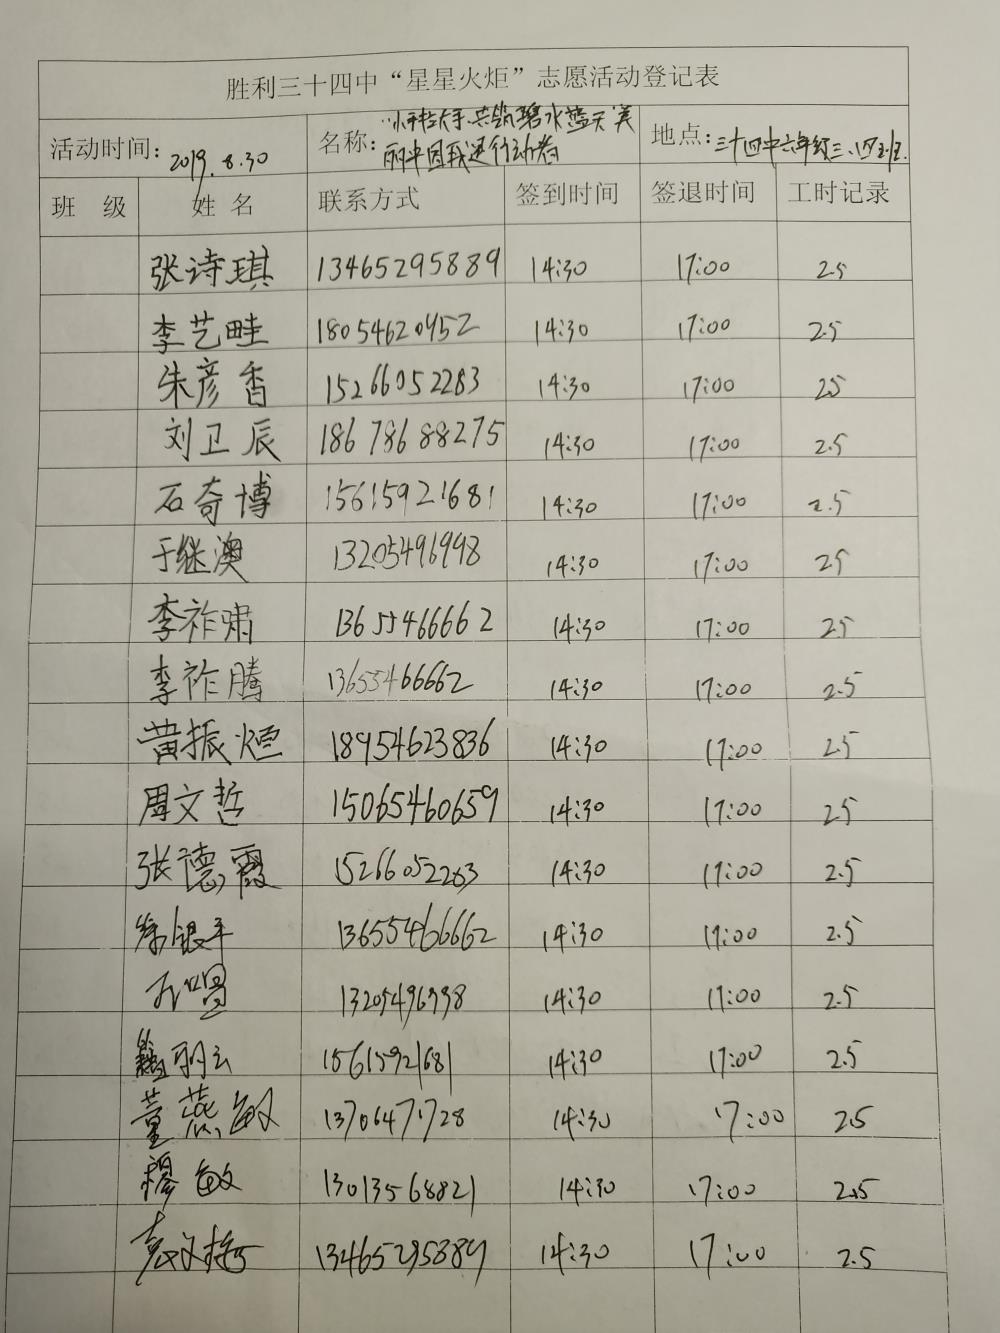 胜利三十四中“星星火炬”志愿活动登记表
活动时间: 2019.8.30 名称: 小手拉大手.共筑碧水蓝天 美
丽中国我是行动者 地点: 三十四中六年级三、四五班.
班 级 姓 名 联系方式 签到时间 签退时间 工时记录
张诗琪 13465295889 14:30 17:00 2.5
李艺畦 18054620952 14:30 17:00 2.5
朱彦香 15266052283 14:30 17:00 2.5
刘卫辰 18678688275 14:30 17:00 2.5
石奇博 15615921681 14:30 17:00 2.5
于继澳 13205496998 14:30 17:00 2.5
李祚啸 13655466662 14:30 17:00 2.5
李祚腾 13655466662 14:30 17:00 2.5
黄振烜 18954623836 14:30 17:00 2.5
周文哲 15065460659 14:30 17:00 2.5
张德霞 15266052283 14:30 17:00 2.5
银平 13655466662 14:30 17:00 2.5
13205496998 14:30 17:00 2.5
丽云 15615921681 14:30 17:00 2.5
董燕敏 13706471728 14:30 17:00 2.5
穆敏 13013568821 14:30 17:00 2.5
袁文梅 13465295889 14:30 17:00 2.5